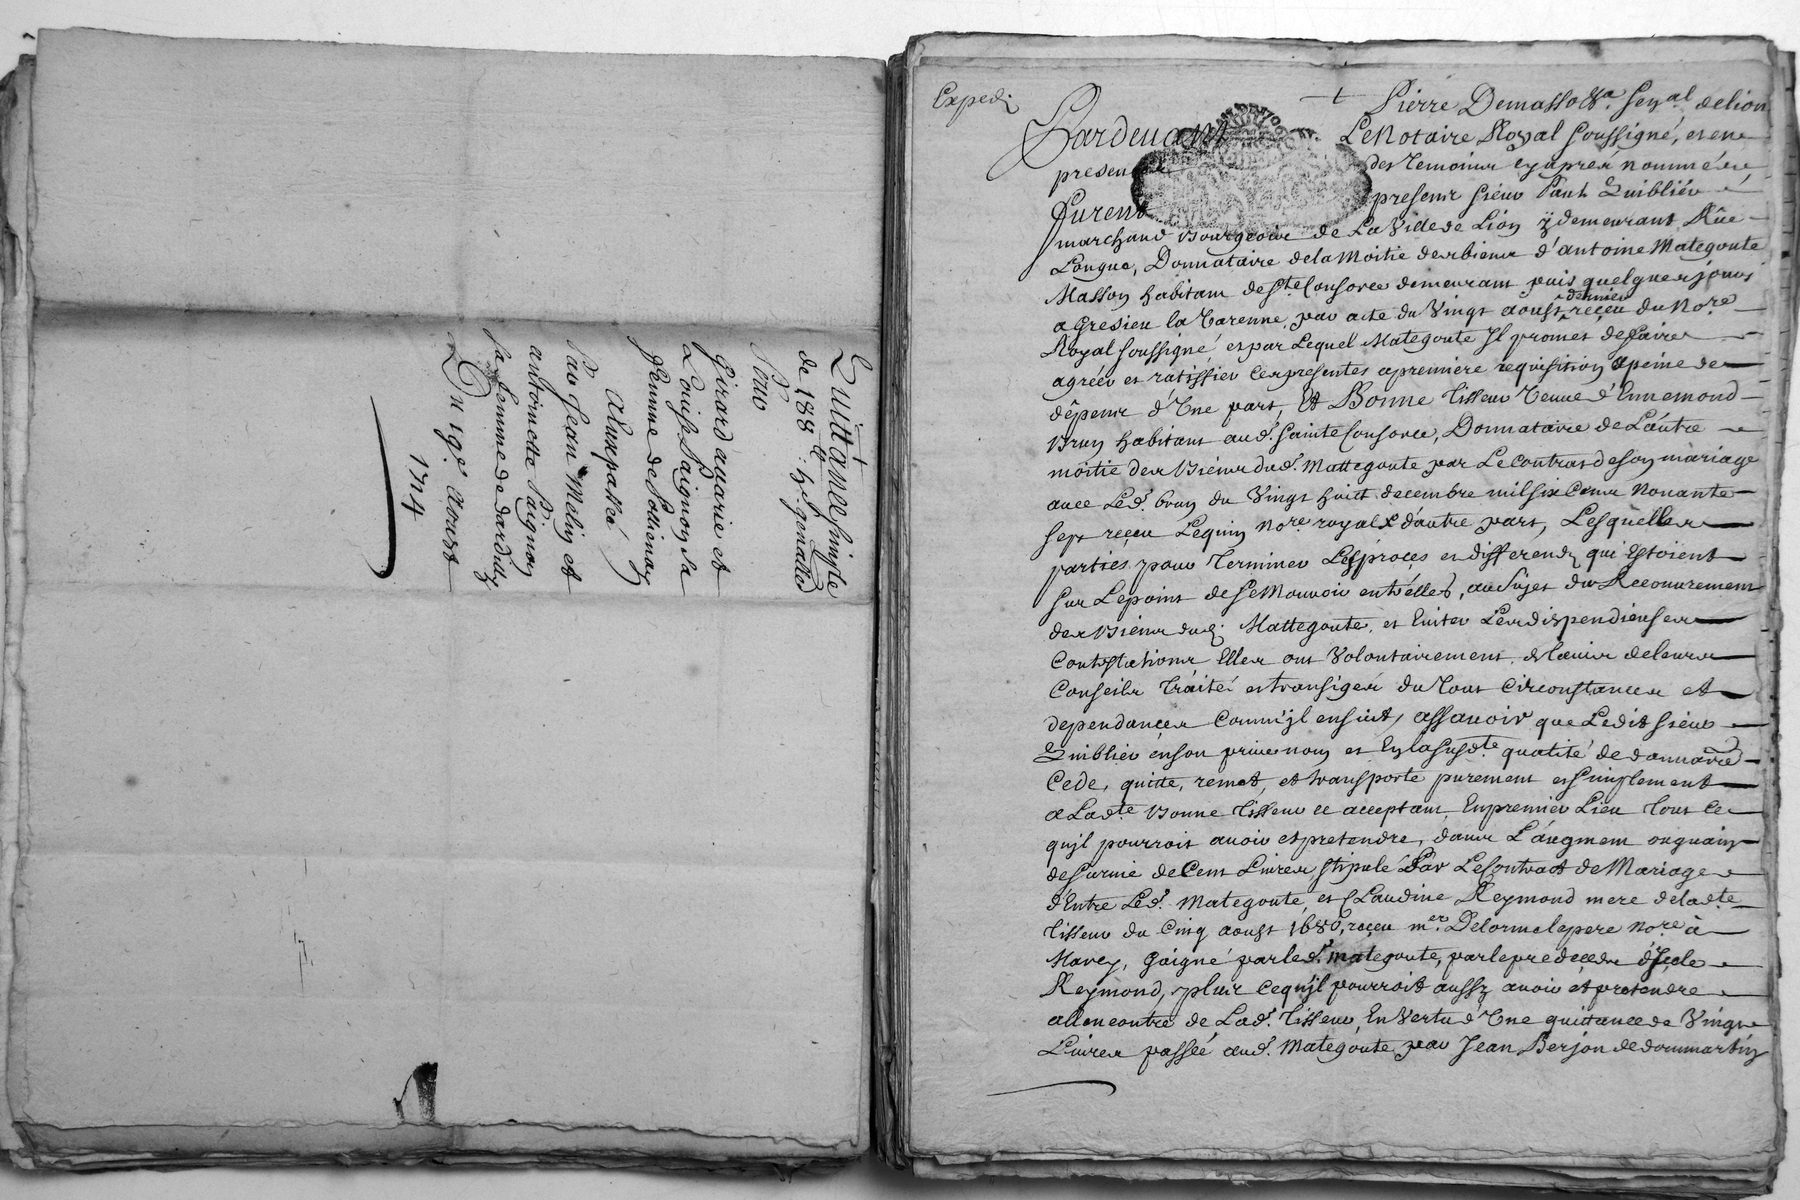 Quittance simple
de 188 lt. h. genalle
Pour
Girard avarie et
Louise Paignon sa
femme de Pollienay
a Luy passée
Par Jean Melin et
antoinette Pignon
sa femme de dardilly
Du 19e Aoust
1714
Exped.
Pierre Demasso &a. senal. de lion
Pardevant Le Notaire Royal soussigné, et en
presence des temoins cy apres nommés
furent presents sieur Paul Quiblier
marchand Bourgeois de La Ville de Lion y demeurant Rüe
Longue, Donnataire de la Moitié des biens d'antoine Mategoute
Masson habitant de Ste Consorce demeurant puis quelques jours
a Gresieu la Varenne, par acte du Vingt aoust dernier reçeu du Nore
Royal soussigné et par Lequel Mategoute Il promet de faire
agréer et ratiffier ces presentes a premiere requisition a peine de
dépens d'Une part, Et Bonne Tisseur Veuve d'Ennemond
Brun habitant aud. Sainte Consorce, Donnataire de L'autre
moitié des Biens dud. Mattegoute par Le Contrat de son mariage
avec Led. brun du Vingt huict decembre mil six Cens Nonante
sept reçeu Lequin Nore royal & d'autre part, Lesquelles
parties pour Terminer Les proces et differends qui Estoient
sur Le point de se Mouvoir entr'elles, au sujet du Recouvrement
des Biens dud. Mattegoute, et Eviter Les dispendieuses
Contestations Elles ont Volontairement, de L'avis de leurs
Conseils Traité et transigés du Tout Circonstances et
dependances Comm'jl ensuit, assavoir que Ledit sieur
Quiblier en son privé nom et En la susdte qualité de donnataire
Cede, quite, remet, et transporte purement et simplement
a Ladte Bonne Tisseur ce acceptant, En premier Lieu Tout Ce
qu'jl pourroit avoir et pretendre, dans L'augment ou gain
de survie de Cent Livres, stipulé Par Le Contract de Mariage
d'Entre Led. Mategoute, et Claudine Reymond mere de ladte
Tisseur du Cinq aoust 1680, reçeu mer. Delorme le pere Nore à
Marcy, gaigné par led. mategoute, par le predeces de d'Jcelle
Reymond, plus ce qu'jl pourroit aussy avoir et pretendre
allencontre de Lad. Tisseur, En Vertu d'Une quittance de Vingt
Livres passée aud. Mategoute par Jean Berjon de dommartin